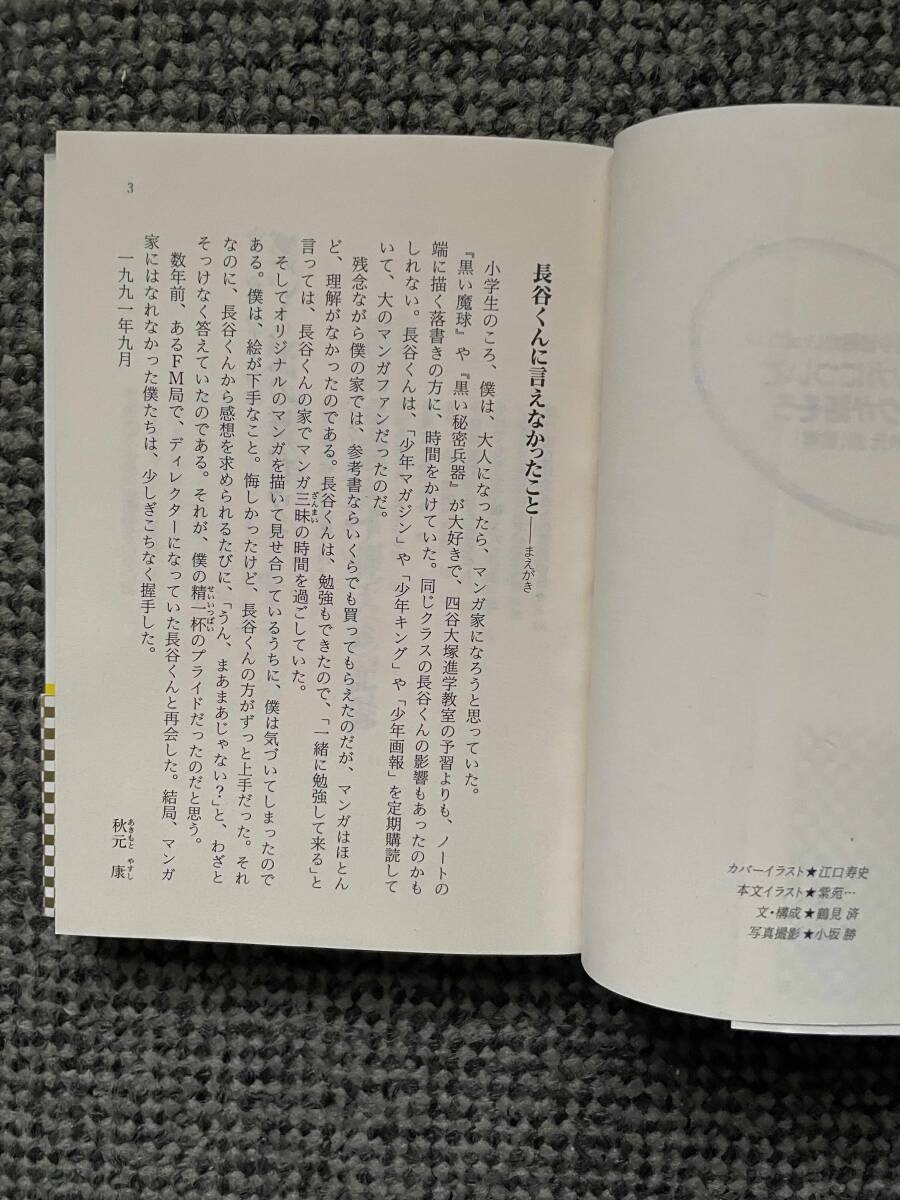 カバーイラスト★江口寿史
本文イラスト★紫苑…
文・構成★鶴見 済
写真撮影★小坂 勝
3
長谷くんに言えなかったこと――まえがき
小学生のころ、僕は、大人になったら、マンガ家になろうと思っていた。
『黒い魔球』や『黒い秘密兵器』が大好きで、四谷大塚進学教室の予習よりも、ノートの
端に描く落書きの方に、時間をかけていた。同じクラスの長谷くんの影響もあったのかも
しれない。長谷くんは、「少年マガジン」や「少年キング」や「少年画報」を定期購読して
いて、大のマンガファンだったのだ。
残念ながら僕の家では、参考書ならいくらでも買ってもらえたのだが、マンガはほとん
ど、理解がなかったのである。長谷くんは、勉強もできたので、「一緒に勉強して来る」と
言っては、長谷くんの家でマンガ三昧の時間を過ごしていた。
ざんまい
そしてオリジナルのマンガを描いて見せ合っているうちに、僕は気づいてしまったので
ある。僕は、絵が下手なこと。悔しかったけど、長谷くんの方がずっと上手だった。それ
なのに、長谷くんから感想を求められるたびに、「うん、まあまあじゃない？」と、わざと
そっけなく答えていたのである。それが、僕の精一杯のプライドだったのだと思う。
せいいっぱい
数年前、あるFM局で、ディレクターになっていた長谷くんと再会した。結局、マンガ
家にはなれなかった僕たちは、少しぎこちなく握手した。
一九九一年九月
秋元 康
あきもと やすし